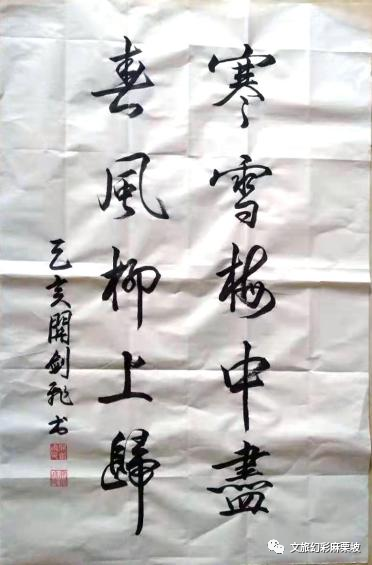 寒雪梅中盡
春風柳上歸
乙亥開劍飛书
文旅幻彩麻栗坡